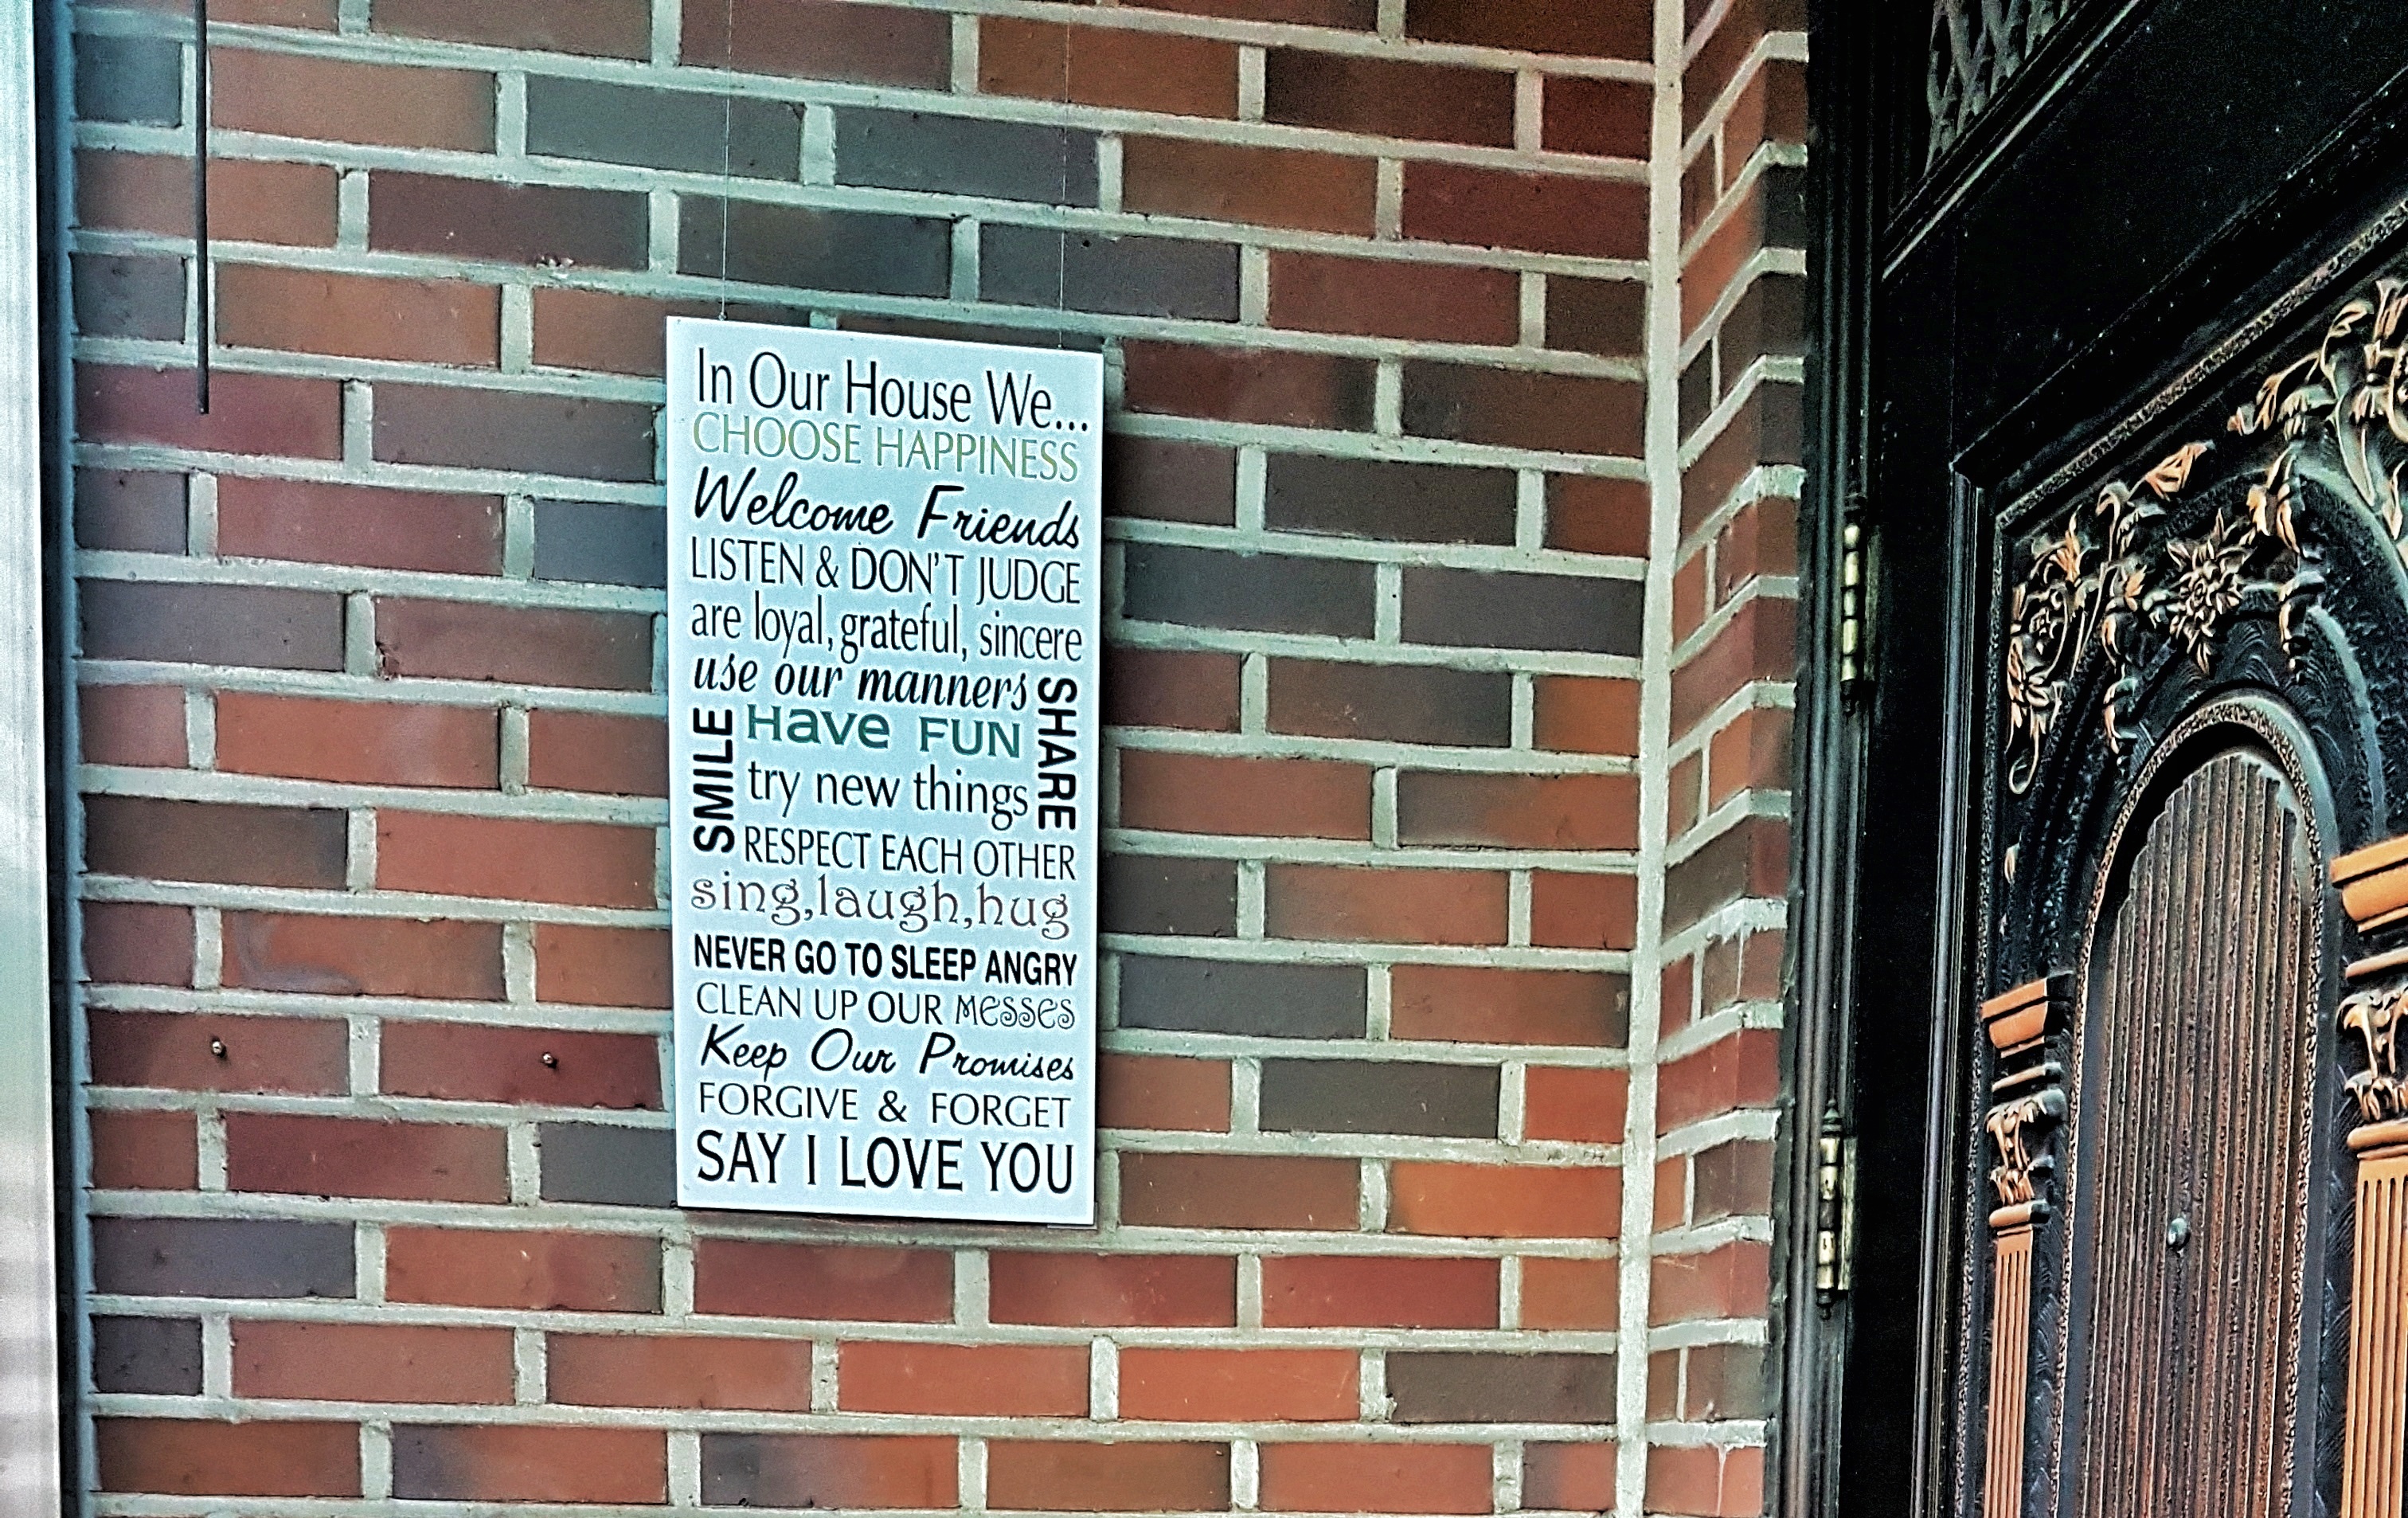 In Our House We...
CHOOSE HAPPINESS
Welcome Friends
LISTEN & DON'T JUDGE
are loyal, grateful, sincere
use our manners
SHARE
SMILE
Have FUN
try new things
RESPECT EACH OTHER
sing,laugh,hug
NEVER GO TO SLEEP ANGRY
CLEAN UP OUR MESSES
Keep Our Promises
FORGIVE & FORGET
SAY I LOVE YOU